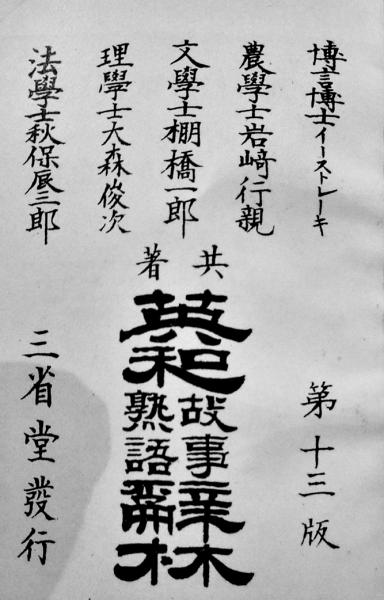 博言博士イーストレーキ
農學士岩崎行親
文學士棚橋一郎
理學士大森俊次
法學士秋保辰三郎
共著
第十三版
英和
故事
熟語
辭林
三省堂發行